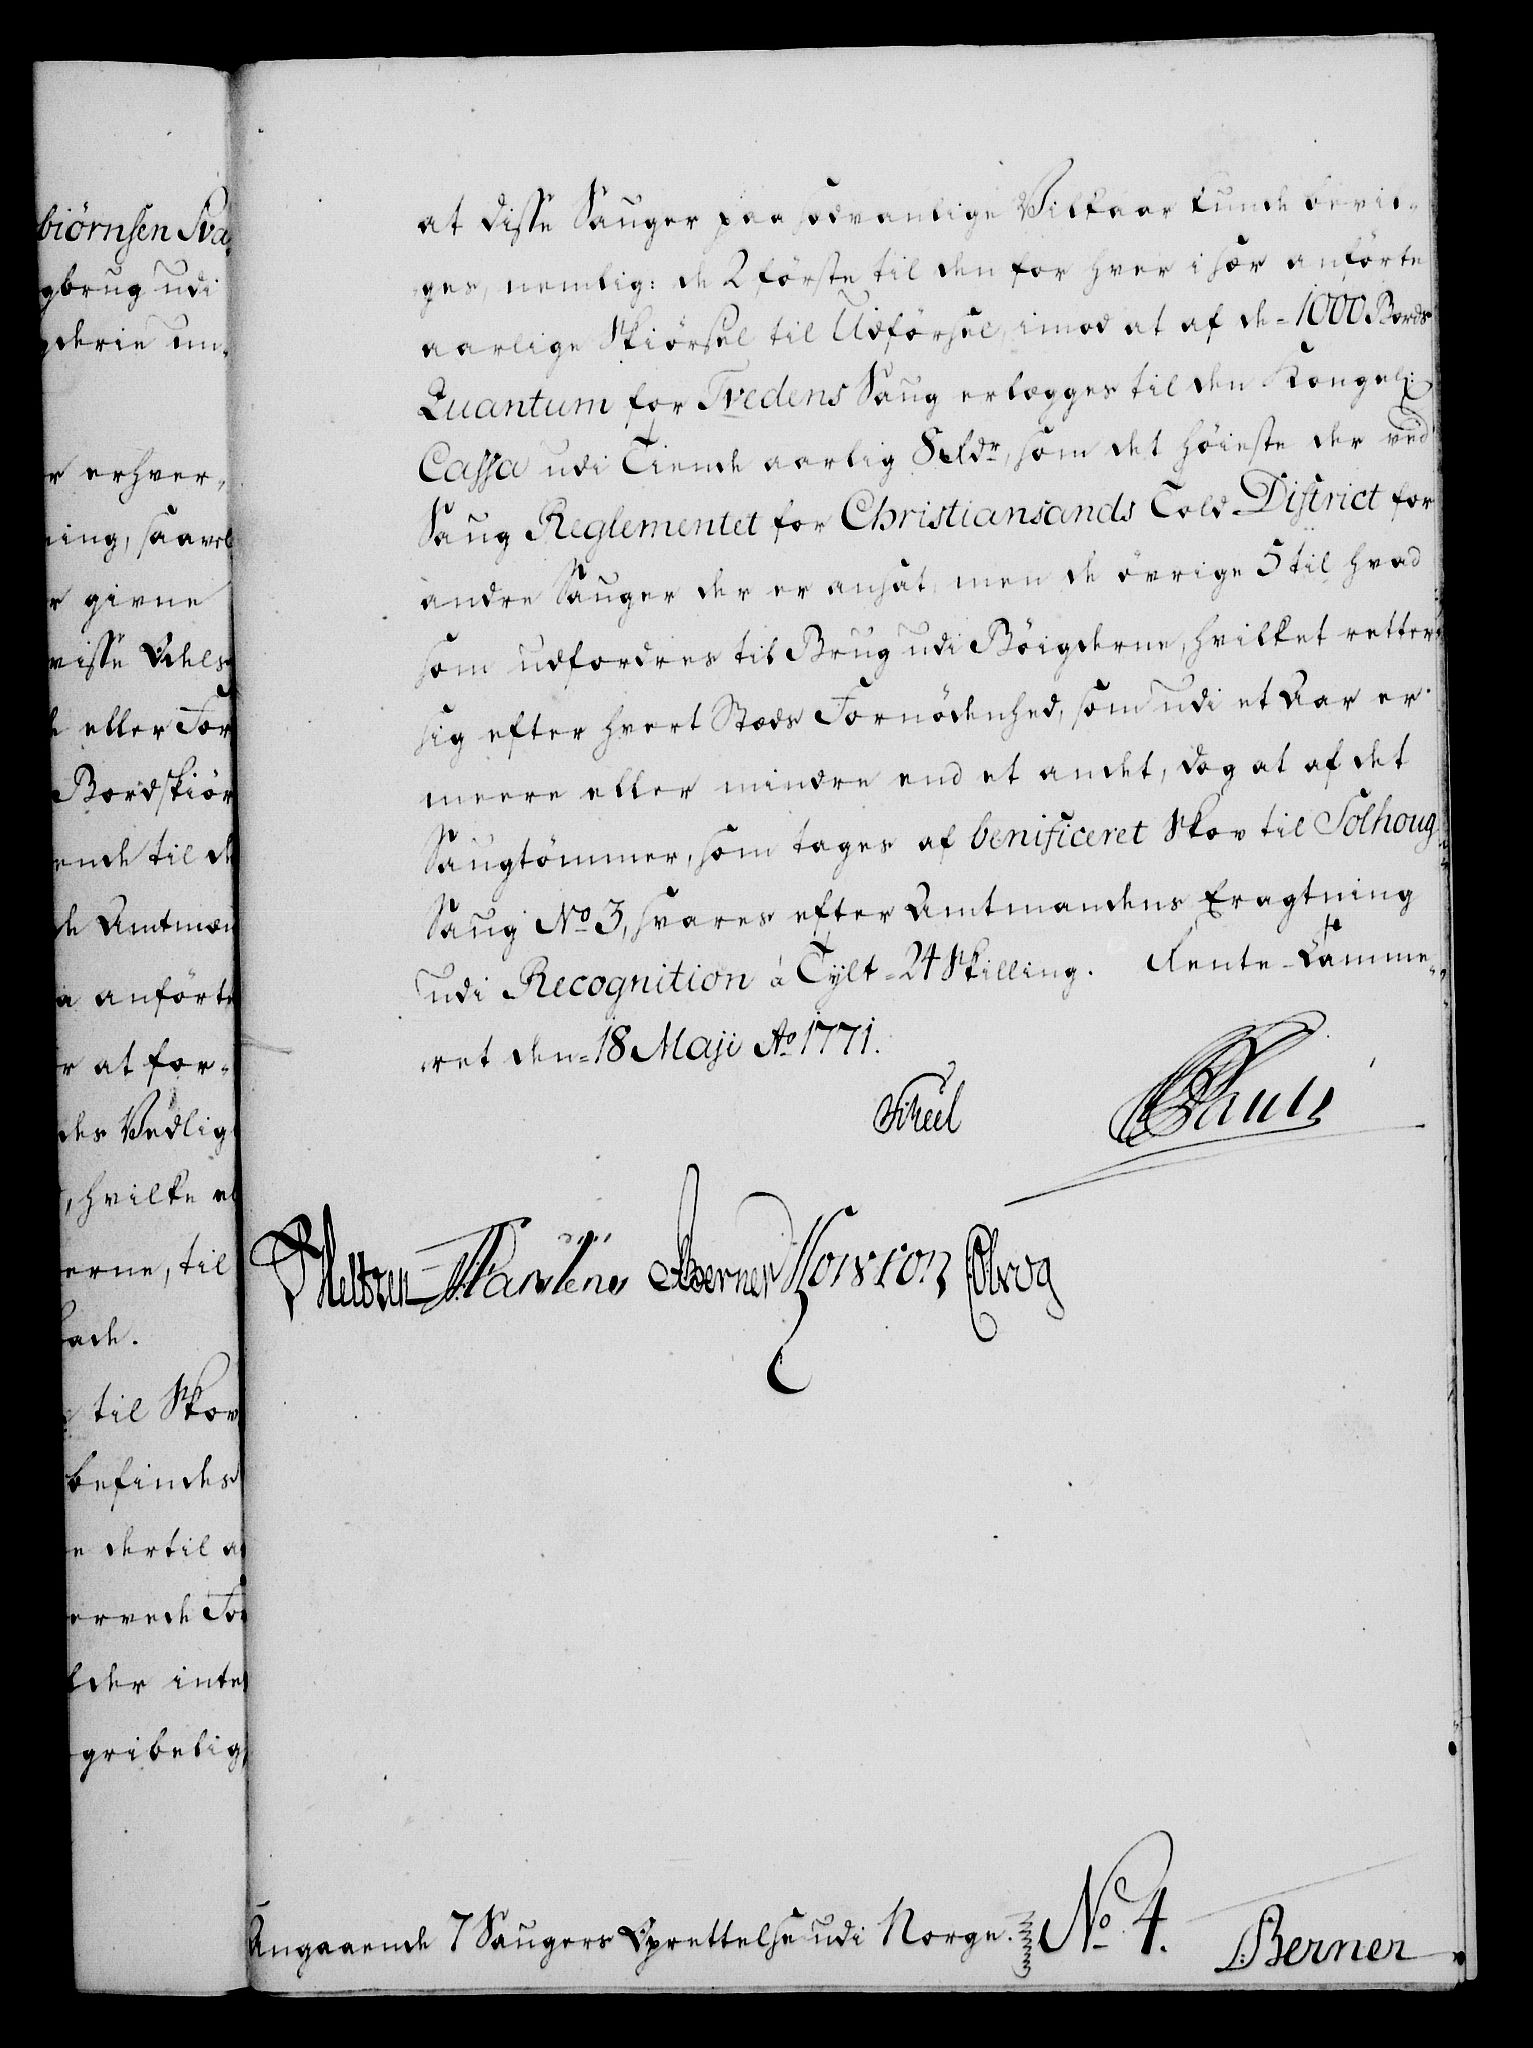 biörnsen Sva-
gbrug udi
gderie un-
r erhver-
ning, saavel
r givne
visse Odels
e eller For
Bordskiör
ende til de
de Amtmæn
a anförte
r at for-
des Vedlig
, hvilke el
erne, til
bade.
til Skov
befindes
e dertil a
ervede For
lder inte
gribelig
at disse Sauger paa sædvanlige Vilkaar kunde bevil-
ges, nemlig: de 2 förste til den for hver i sær anförte
aarlige Skiörsel til Udförsel, imod at af de 1000 Bords
Quantum for Tvedens Saug erlægges til den Kongel:
Cassa udi Tiende aarlig 8 Rdr, som det höieste der ved
Saug Reglementet for Christiansands Told District for
andre Sauger der er ansat, men de övrige 5 til hvad
som udfordres til Brug udi Böigderne, hvilket retter
sig efter hvert Stæds Fornödenhed, som udi et Aar er
meere eller mindre end et andet, dog at af det
Saugtömmer, som tages af benificeret Skov til Solhoug
Saug No 3, svares efter Amtmandens Eragtning
udi Recognition á Tylt 24 Skilling. Rente-Camme-
ret den 18 Maji Ao 1771.
Scheel
Berner Colvog
Angaaende 7 Saugers Oprettelse udi Norge. No 4. Berner